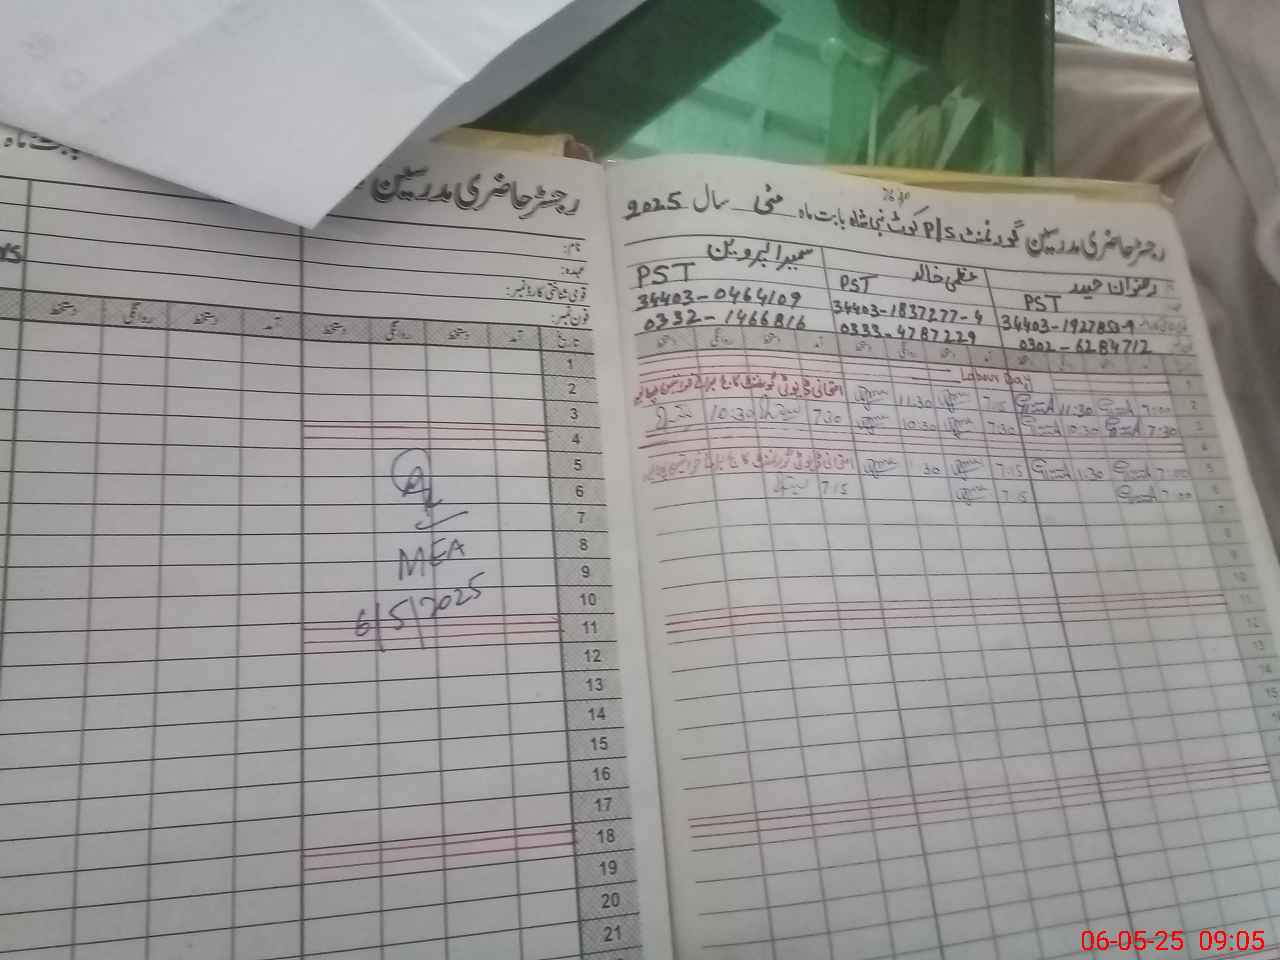 رجسٹر حاضری مدرسین گورنمنٹ P/S کوٹ نبی شاہ بابت ماہ مئی سال 2025
رضوان حیدر
عظمیٰ خالد
سمیرا پروین
PST
PST
PST
34403-1927853-9
34403-1837277-4
34403-0464109
0302-6284712
0333-4787229
0332-1466816
1 Labour Day
2 7:00 11:30 7:15 11:30 امتحانی ڈیوٹی گورنمنٹ کالج برائے خواتین
3 7:30 10:30 7:30 10:30 7:30 10:30
4
5 7:00 1:30 7:15 1:30 امتحانی ڈیوٹی گورنمنٹ کالج برائے خواتین
6 7:00 7:15 7:15
7
8
9
10
11
12
13
14
15
رجسٹر حاضری مدرسین
بابت ماہ
نام:
عہدہ:
قومی شناختی کارڈ نمبر:
فون نمبر:
تاریخ آمد دستخط روانگی دستخط آمد دستخط روانگی دستخط
1
2
3
4
5
6
7
8
9
10
11
12
13
14
15
16
17
18
19
20
21
MEA
6/5/2025
06-05-25 09:05